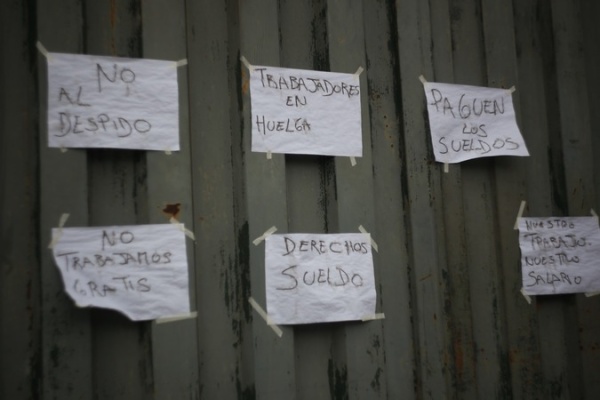 NO
AL
DESPIDO
TRABAJADORES
EN
HUELGA
PAGUEN
LOS
SUELDOS
NO
TRABAJAMOS
GRATIS
DERECHOS
SUELDO
NUESTRO
TRABAJO.
NUESTRO
SALARIO